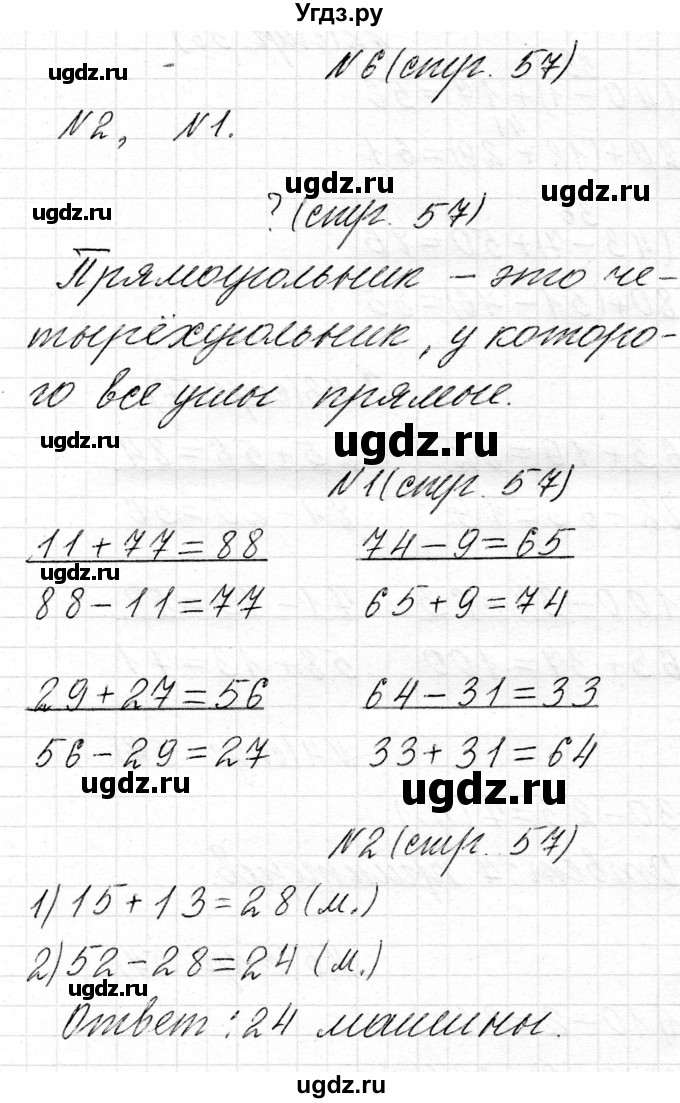 Угдз.ру
ugdz.ru
№6 (стр. 57)
№2, №1.
ugdz.ru
ugdz.ru
ugdz.ru
? (стр. 57)
Прямоугольник – это че-
тырёхугольник, у которо-
го все углы прямые.
ugdz.ru
ugdz.ru
№1 (стр. 57)
11+77=88 74-9=65
ugdz.ru
88-11=77 65+9=74
29+27=56 64-31=33
56-29=27 33+31=64
ugdz.ru
ugdz.ru
№2 (стр. 57)
1) 15+13=28 (м.)
2) 52-28=24 (м.)
ugdz.ru
Ответ: 24 машины.
ugdz.ru